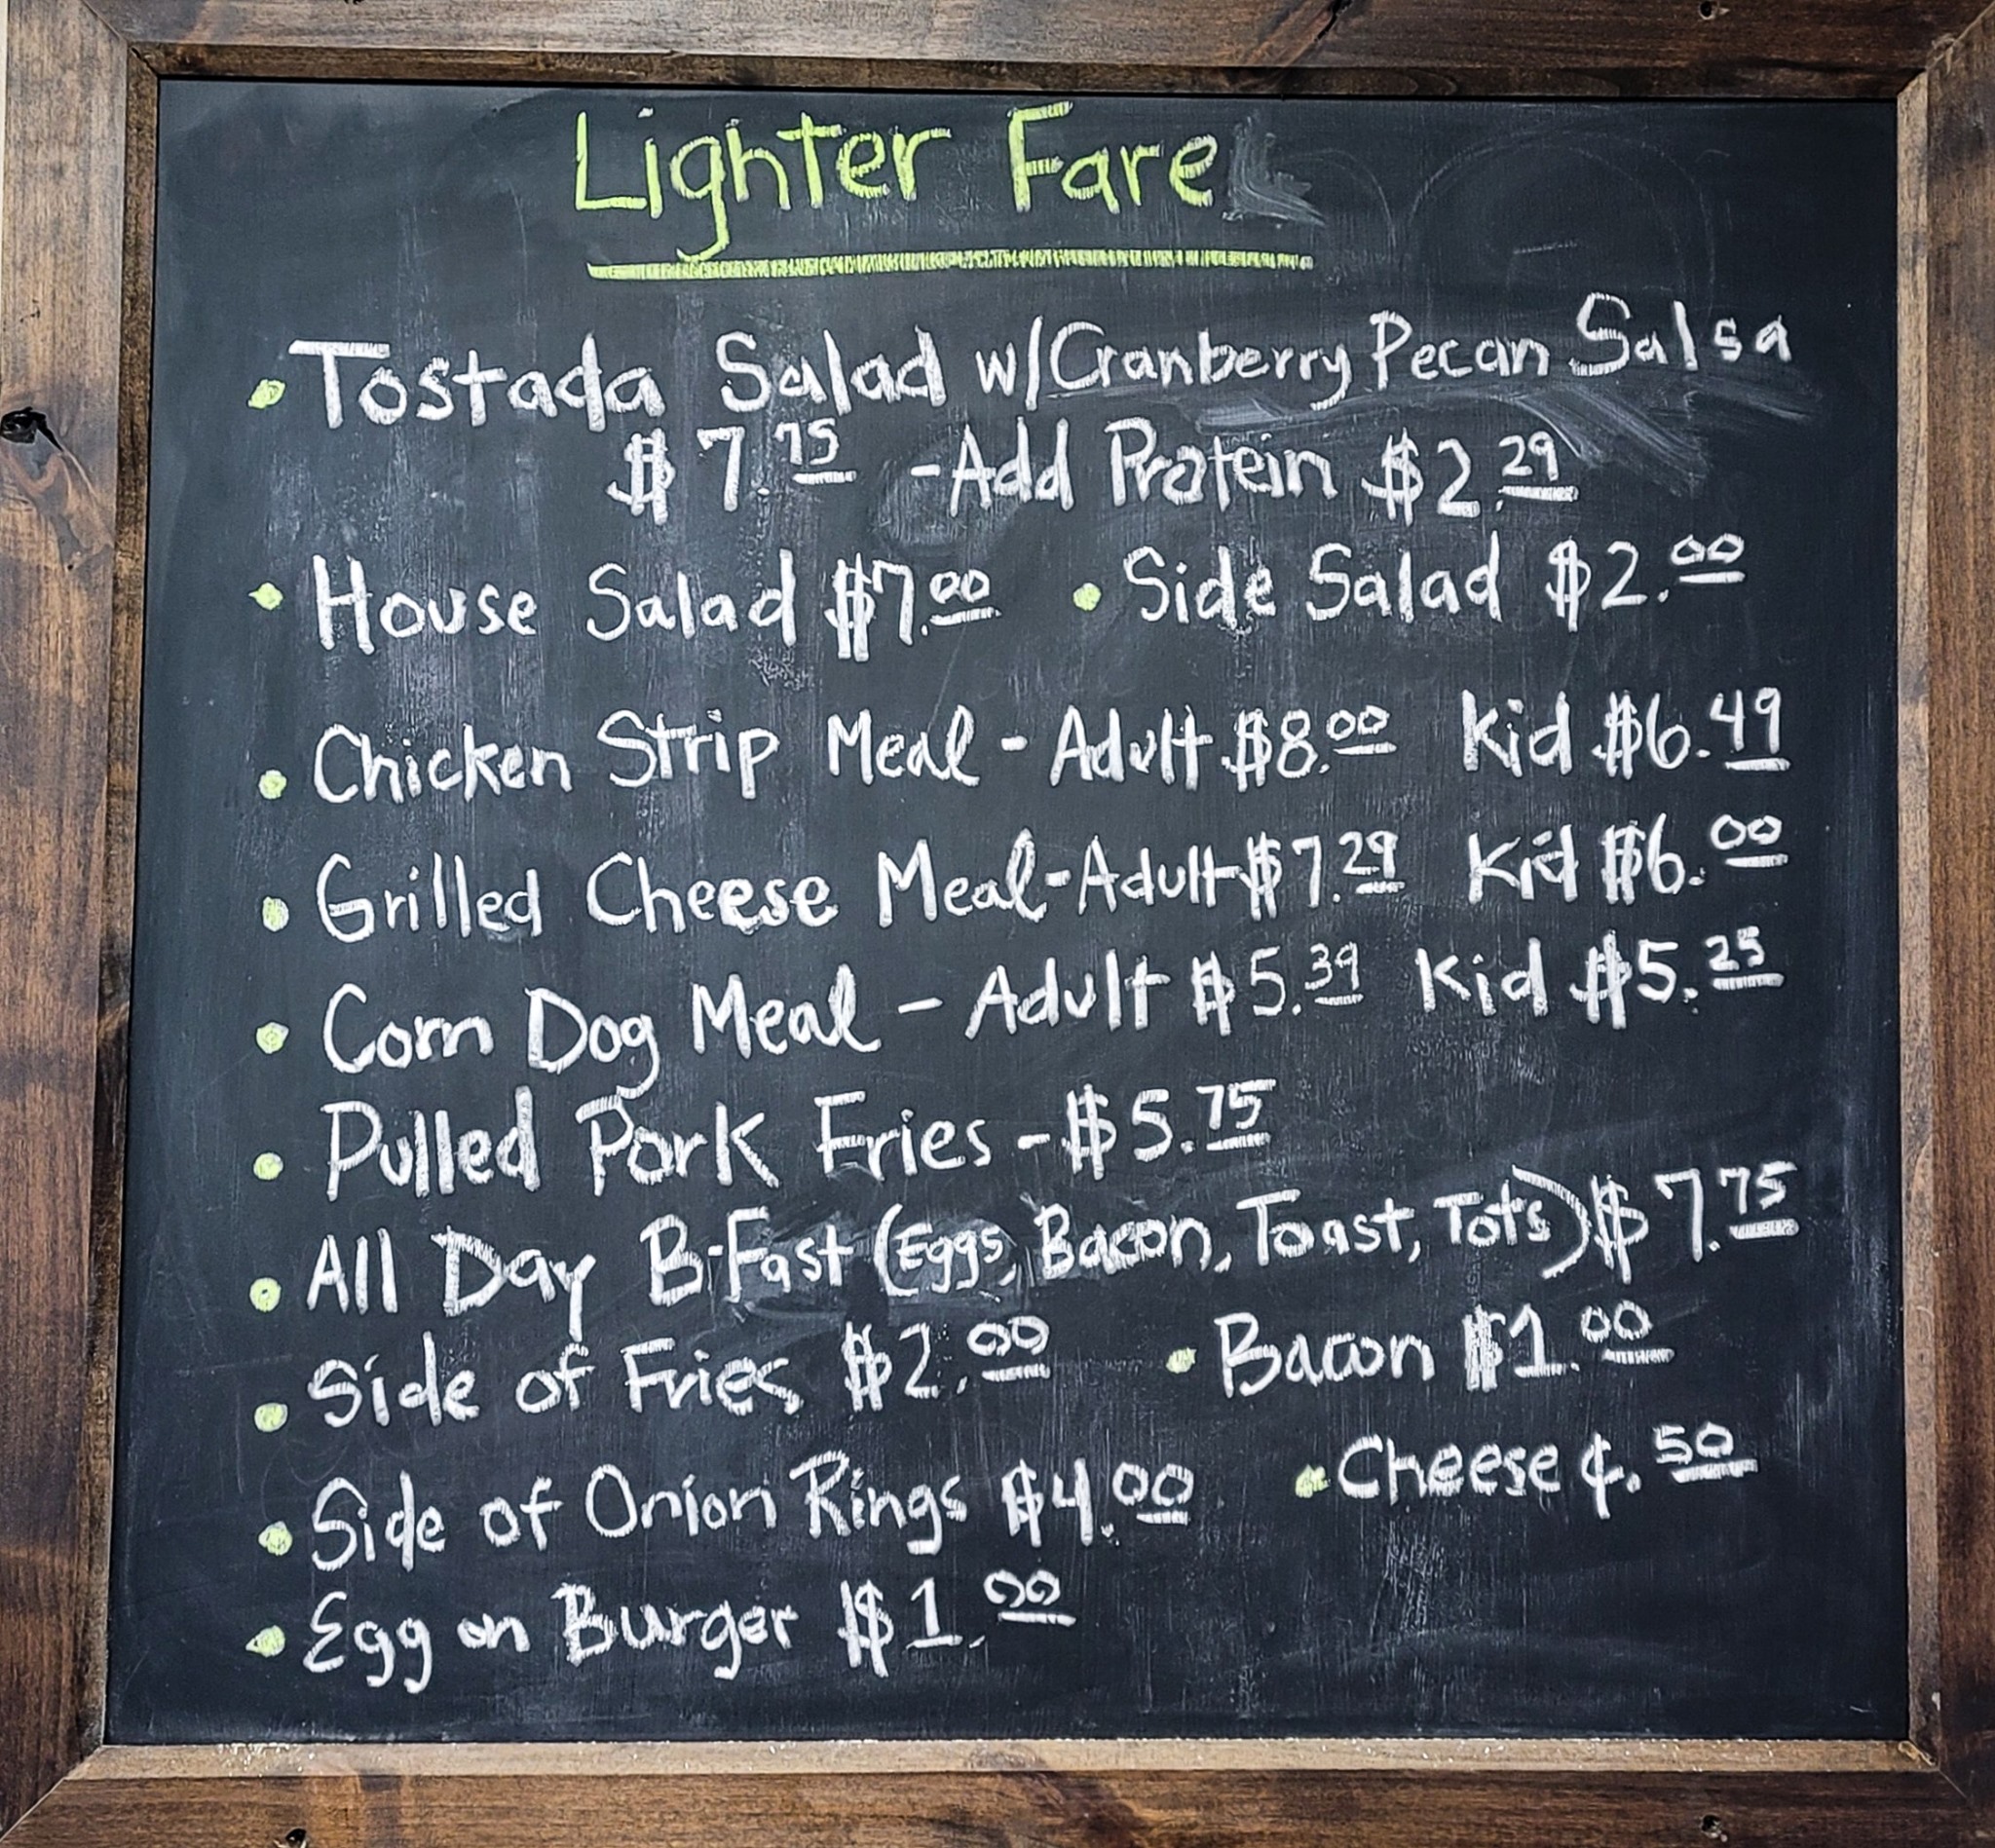 Lighter Fare
• Tostada Salad w/Cranberry Pecan Salsa
$7.75 -Add Protein $2.29
• House Salad $7.00 • Side Salad $2.00
• Chicken Strip Meal - Adult $8.00 Kid $6.49
• Grilled Cheese Meal-Adult $7.29 Kid $6.00
• Corn Dog Meal - Adult $5.39 Kid $5.25
• Pulled Pork Fries - $5.75
• All Day B-Fast (Eggs, Bacon, Toast, Tots) $7.75
• Side of Fries $2.00 • Bacon $1.00
• Side of Onion Rings $4.00 • Cheese ¢.50
• Egg on Burger $1.00